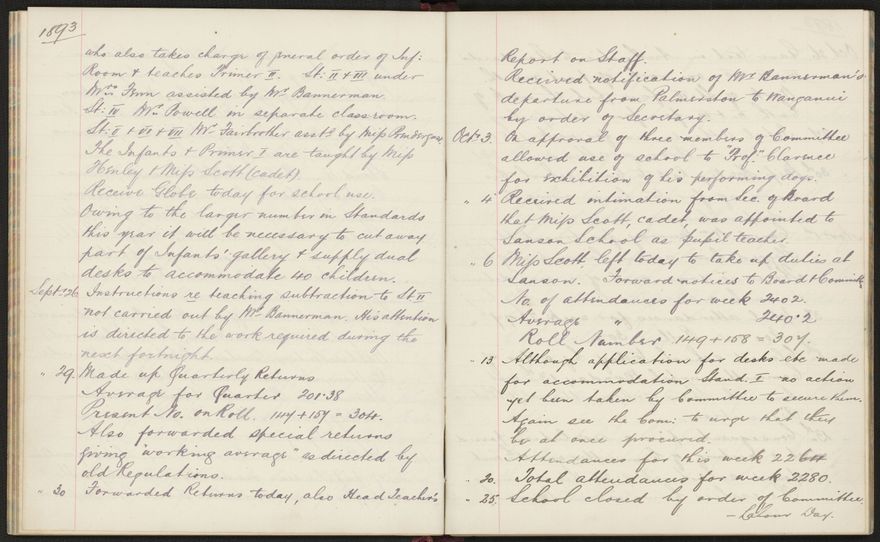 1893
who also takes charge of general order of Inf:
Room & teaches Primer II. St: II & III under
Mrs Fenn assisted by Mr Bannerman.
St: IV Mr Powell in separate classroom.
St: V + VI + VII Mr Fairbrother asstd by Miss Prendergast
The Infants & Primer I are taught by Miss
Henley & Miss Scott (cadet)
Receive Globe today for school use.
Owing to the larger number in Standards
this year it will be necessary to cut away
part of Infants' gallery & supply dual
desks to accommodate 40 children.
Sept. 26 Instructions re teaching subtraction to St II
not carried out by Mr Bannerman. His attention
is directed to the work required during the
next fortnight.
" 29. Made up Quarterly Returns
Average for Quarter 201.38
Present No. on Roll. 147 + 157 = 304.
Also forwarded special returns
giving "working average" as directed by
old Regulations.
" 30 Forwarded Returns today, also Head Teacher's
Report on Staff.
Received notification of Mr Bannerman's
departure from Palmerston to Wanganui
by order of Secretary.
Octr 3. On approval of three members of Committee
allowed use of school to "Prof." Clarence
for exhibition of his performing dogs.
" 4 Received intimation from Sec. of Board
that Miss Scott, cadet was appointed to
Sanson School as pupil teacher.
" 6 Miss Scott left today to take up duties at
Sanson. Forward notices to Board & Committe
No. of attendances for week 2402.
Average " 240.2
Roll Number 149 + 158 = 307.
" 13 Although application for desks etc made
for accommodation Stand. I no action
yet been taken by Committee to secure them.
Again see the Com: to urge that they
be at once procured.
Attendances for this week 2264
" 20. Total attendances for week 2280.
" 25. School closed by order of Committee.
— Labour Day.